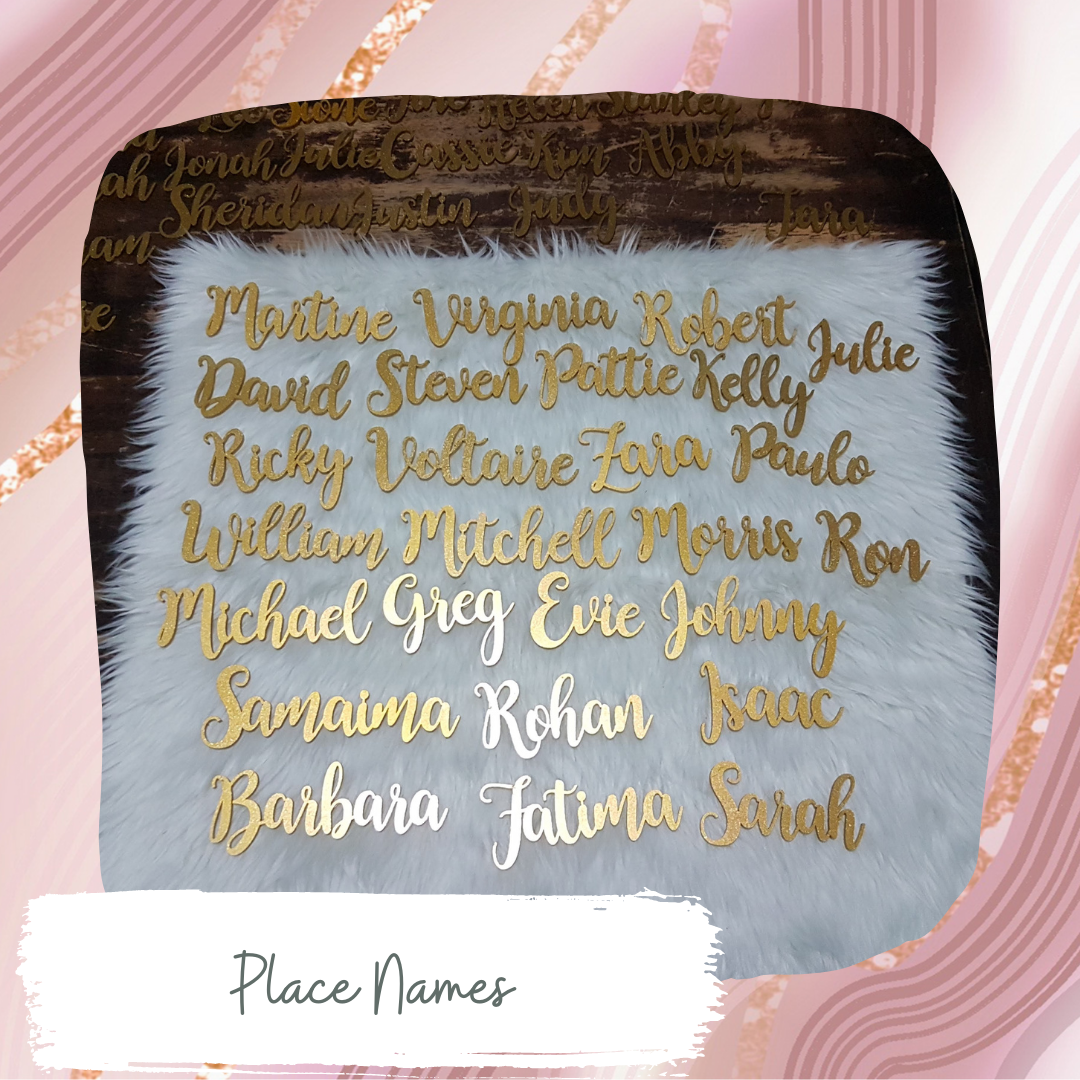 Lee Stone Jane Helen Stanley
Jonah Julie Cassie Kim Abby
Sheridan Justin Judy Tara
Martine Virginia Robert Julie
David Steven Pattie Kelly
Ricky Voltaire Zara Paulo
William Mitchell Morris Ron
Michael Greg Evie Johnny
Samaima Rohan Isaac
Barbara Fatima Sarah
Place Names